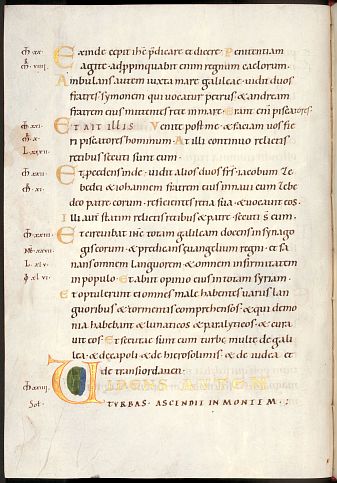 Exinde cepit ihc p̄dicare et dicere. Penitentiam
agite. adp̄pinquabit enim regnum caelorum.
Ambulans autem iuxta mare galileae. uidit duos
fratres. symonem qui uocatur petrus. & andream
fratrem eius mittentes rete in mare. Erant eni piscatores.
Et ait illis. Venite post me. & faciam uos fie
ri piscatores hominum. At illi continuo relictis
retibus secuti sunt eum.
Et p̄cedens inde. uidit alios duos frs. iacobum ze
bedei & iohannem fratrem eius in naui cum zebe
deo patre eorum. reficientes retia sua. & uocauit eos.
Illi aut statim relictis retibus & patre. secuti s̄ eum.
Et circuibat ihc totam galileam docens in synago
gis eorum. & predicans euangelium regni. et sa
nans omnem languorem & omnem infirmitatem
in populo. Et abiit opinio eius in totam syriam.
Et optulerunt ei omnes male habentes uariis lan
guoribus & tormentis comprehensos. & qui demo
nia habebant. & lunaticos & paralyticos. & cura
uit eos. Et secutae sunt eum turbe multe. de gali
lea. & decapoli. & de hierosolimis. & de iudea et
de transiordanen.
VIDENS AUTEM
TURBAS. ASCENDIT IN MONTEM.